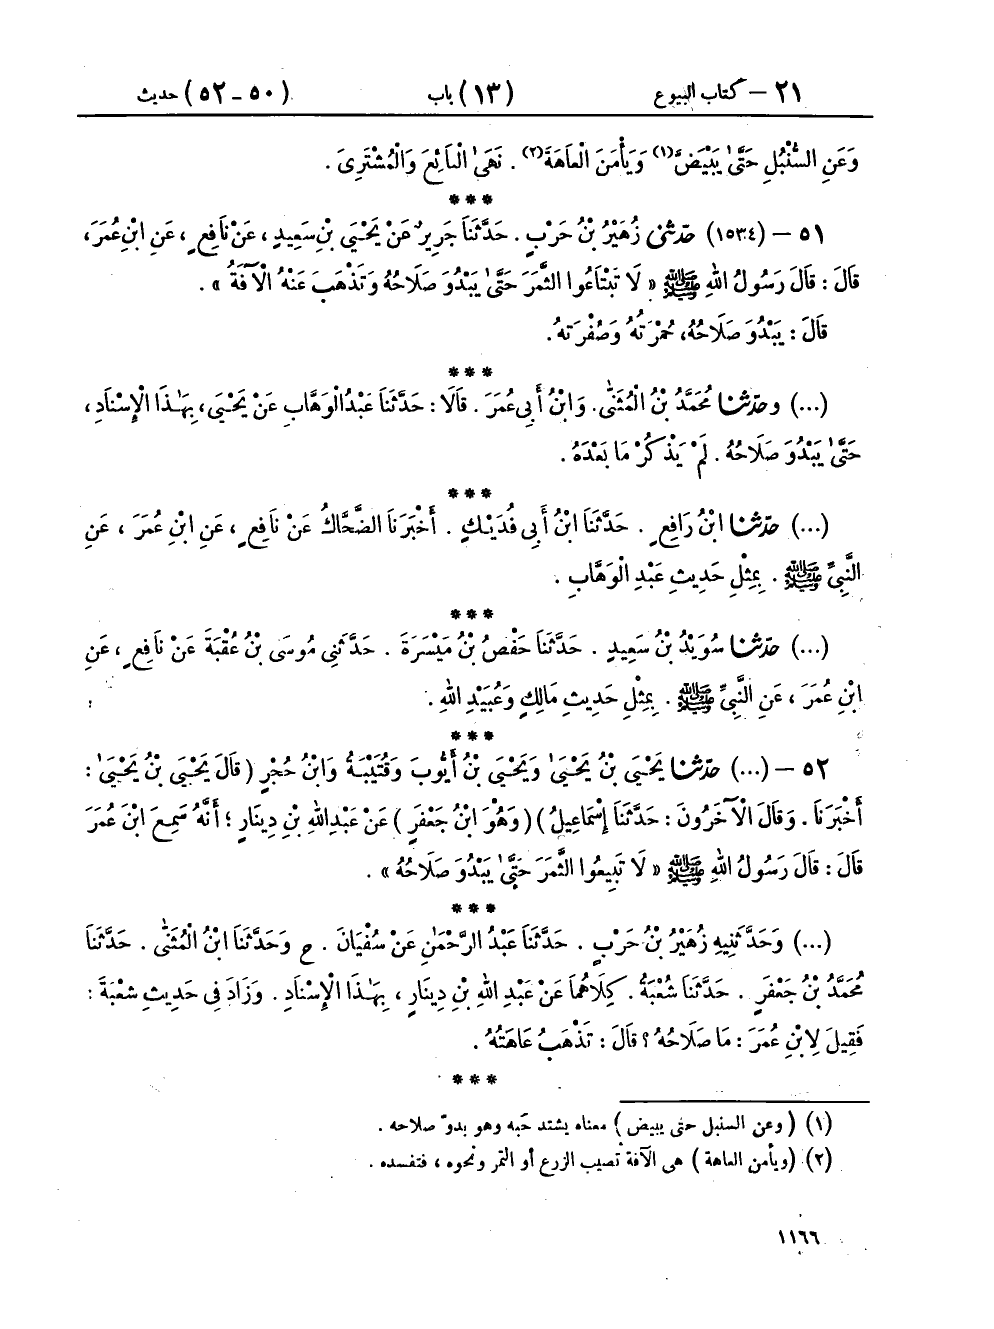 ٢١ – كتاب البيوع (١٣) باب (٥٠ – ٥٢) حديث
وَعَنِ السُّنْبُلِ حَتَّىٰ يَبْيَضَّ(١) وَيَأْمَنَ الْعَاهَةَ(٢) . نَهَىٰ الْبَائِعَ وَالْمُشْتَرِىَ .
***
٥١ – (١٥٣٤) حدّثنى زُهَيْرُ بْنُ حَرْبٍ . حَدَّثَنَا جَرِيرٌ عَنْ يَحْيَىٰ بْنِ سَعِيدٍ ، عَنْ نَافِعٍ ، عَنِ ابْنِ عُمَرَ ،
قَالَ : قَالَ رَسُولُ اللهِ ﷺ « لَا تَبْتَاعُوا الثَّمَرَ حَتَّىٰ يَبْدُوَ صَلَاحُهُ وَتَذْهَبَ عَنْهُ الْآفَةُ » .
قَالَ : يَبْدُوَ صَلَاحُهُ ، حُمْرَتُهُ وَصُفْرَتُهُ .
***
(...) وحدّثنا مُحَمَّدُ بْنُ الْمُثَنَّىٰ . وَابْنُ أَبِى عُمَرَ . قَالَا : حَدَّثَنَا عَبْدُ الْوَهَّابِ عَنْ يَحْيَىٰ ، بِهَـٰذَا الْإِسْنَادِ ،
حَتَّىٰ يَبْدُوَ صَلَاحُهُ . لَمْ يَذْكُرْ مَا بَعْدَهُ .
***
(...) حدّثنا ابْنُ رَافِعٍ . حَدَّثَنَا ابْنُ أَبِى فُدَيْكٍ . أَخْبَرَنَا الضَّحَّاكُ عَنْ نَافِعٍ ، عَنِ ابْنِ عُمَرَ ، عَنِ
النَّبِىِّ ﷺ . بِمِثْلِ حَدِيثِ عَبْدِ الْوَهَّابِ .
***
(...) حدّثنا سُوَيْدُ بْنُ سَعِيدٍ . حَدَّثَنَا حَفْصُ بْنُ مَيْسَرَةَ . حَدَّثَنِى مُوسَىٰ بْنُ عُقْبَةَ عَنْ نَافِعٍ ، عَنِ
ابْنِ عُمَرَ ، عَنِ النَّبِىِّ ﷺ . بِمِثْلِ حَدِيثِ مَالِكٍ وَعُبَيْدِ اللهِ .
***
٥٢ – (...) حدّثنا يَحْيَىٰ بْنُ يَحْيَىٰ وَيَحْيَىٰ بْنُ أَيُّوبَ وَقُتَيْبَةُ وَابْنُ حُجْرٍ ( قَالَ يَحْيَىٰ بْنُ يَحْيَىٰ :
أَخْبَرَنَا . وَقَالَ الْآخَرُونَ : حَدَّثَنَا إِسْمَاعِيلُ ) ( وَهُوَ ابْنُ جَعْفَرٍ ) عَنْ عَبْدِ اللهِ بْنِ دِينَارٍ ؛ أَنَّهُ سَمِعَ ابْنَ عُمَرَ
قَالَ : قَالَ رَسُولُ اللهِ ﷺ « لَا تَبِيعُوا الثَّمَرَ حَتَّىٰ يَبْدُوَ صَلَاحُهُ » .
***
(...) وَحَدَّثَنِيهِ زُهَيْرُ بْنُ حَرْبٍ . حَدَّثَنَا عَبْدُ الرَّحْمَـٰنِ عَنْ سُفْيَانَ . ح وَحَدَّثَنَا ابْنُ الْمُثَنَّىٰ . حَدَّثَنَا
مُحَمَّدُ بْنُ جَعْفَرٍ . حَدَّثَنَا شُعْبَةُ . كِلَاهُمَا عَنْ عَبْدِ اللهِ بْنِ دِينَارٍ ، بِهَـٰذَا الْإِسْنَادِ . وَزَادَ فِى حَدِيثِ شُعْبَةَ :
فَقِيلَ لِابْنِ عُمَرَ : مَا صَلَاحُهُ ؟ قَالَ : تَذْهَبُ عَاهَتُهُ .
***
(١) ( وعن السنبل حتى يبيض ) معناه يشتد حَبه وهو بدوّ صلاحه .
(٢) ( ويأمن العاهة ) هى الآفة تصيب الزرع أو الثمر ونحوه ، فتفسده .
١١٦٦